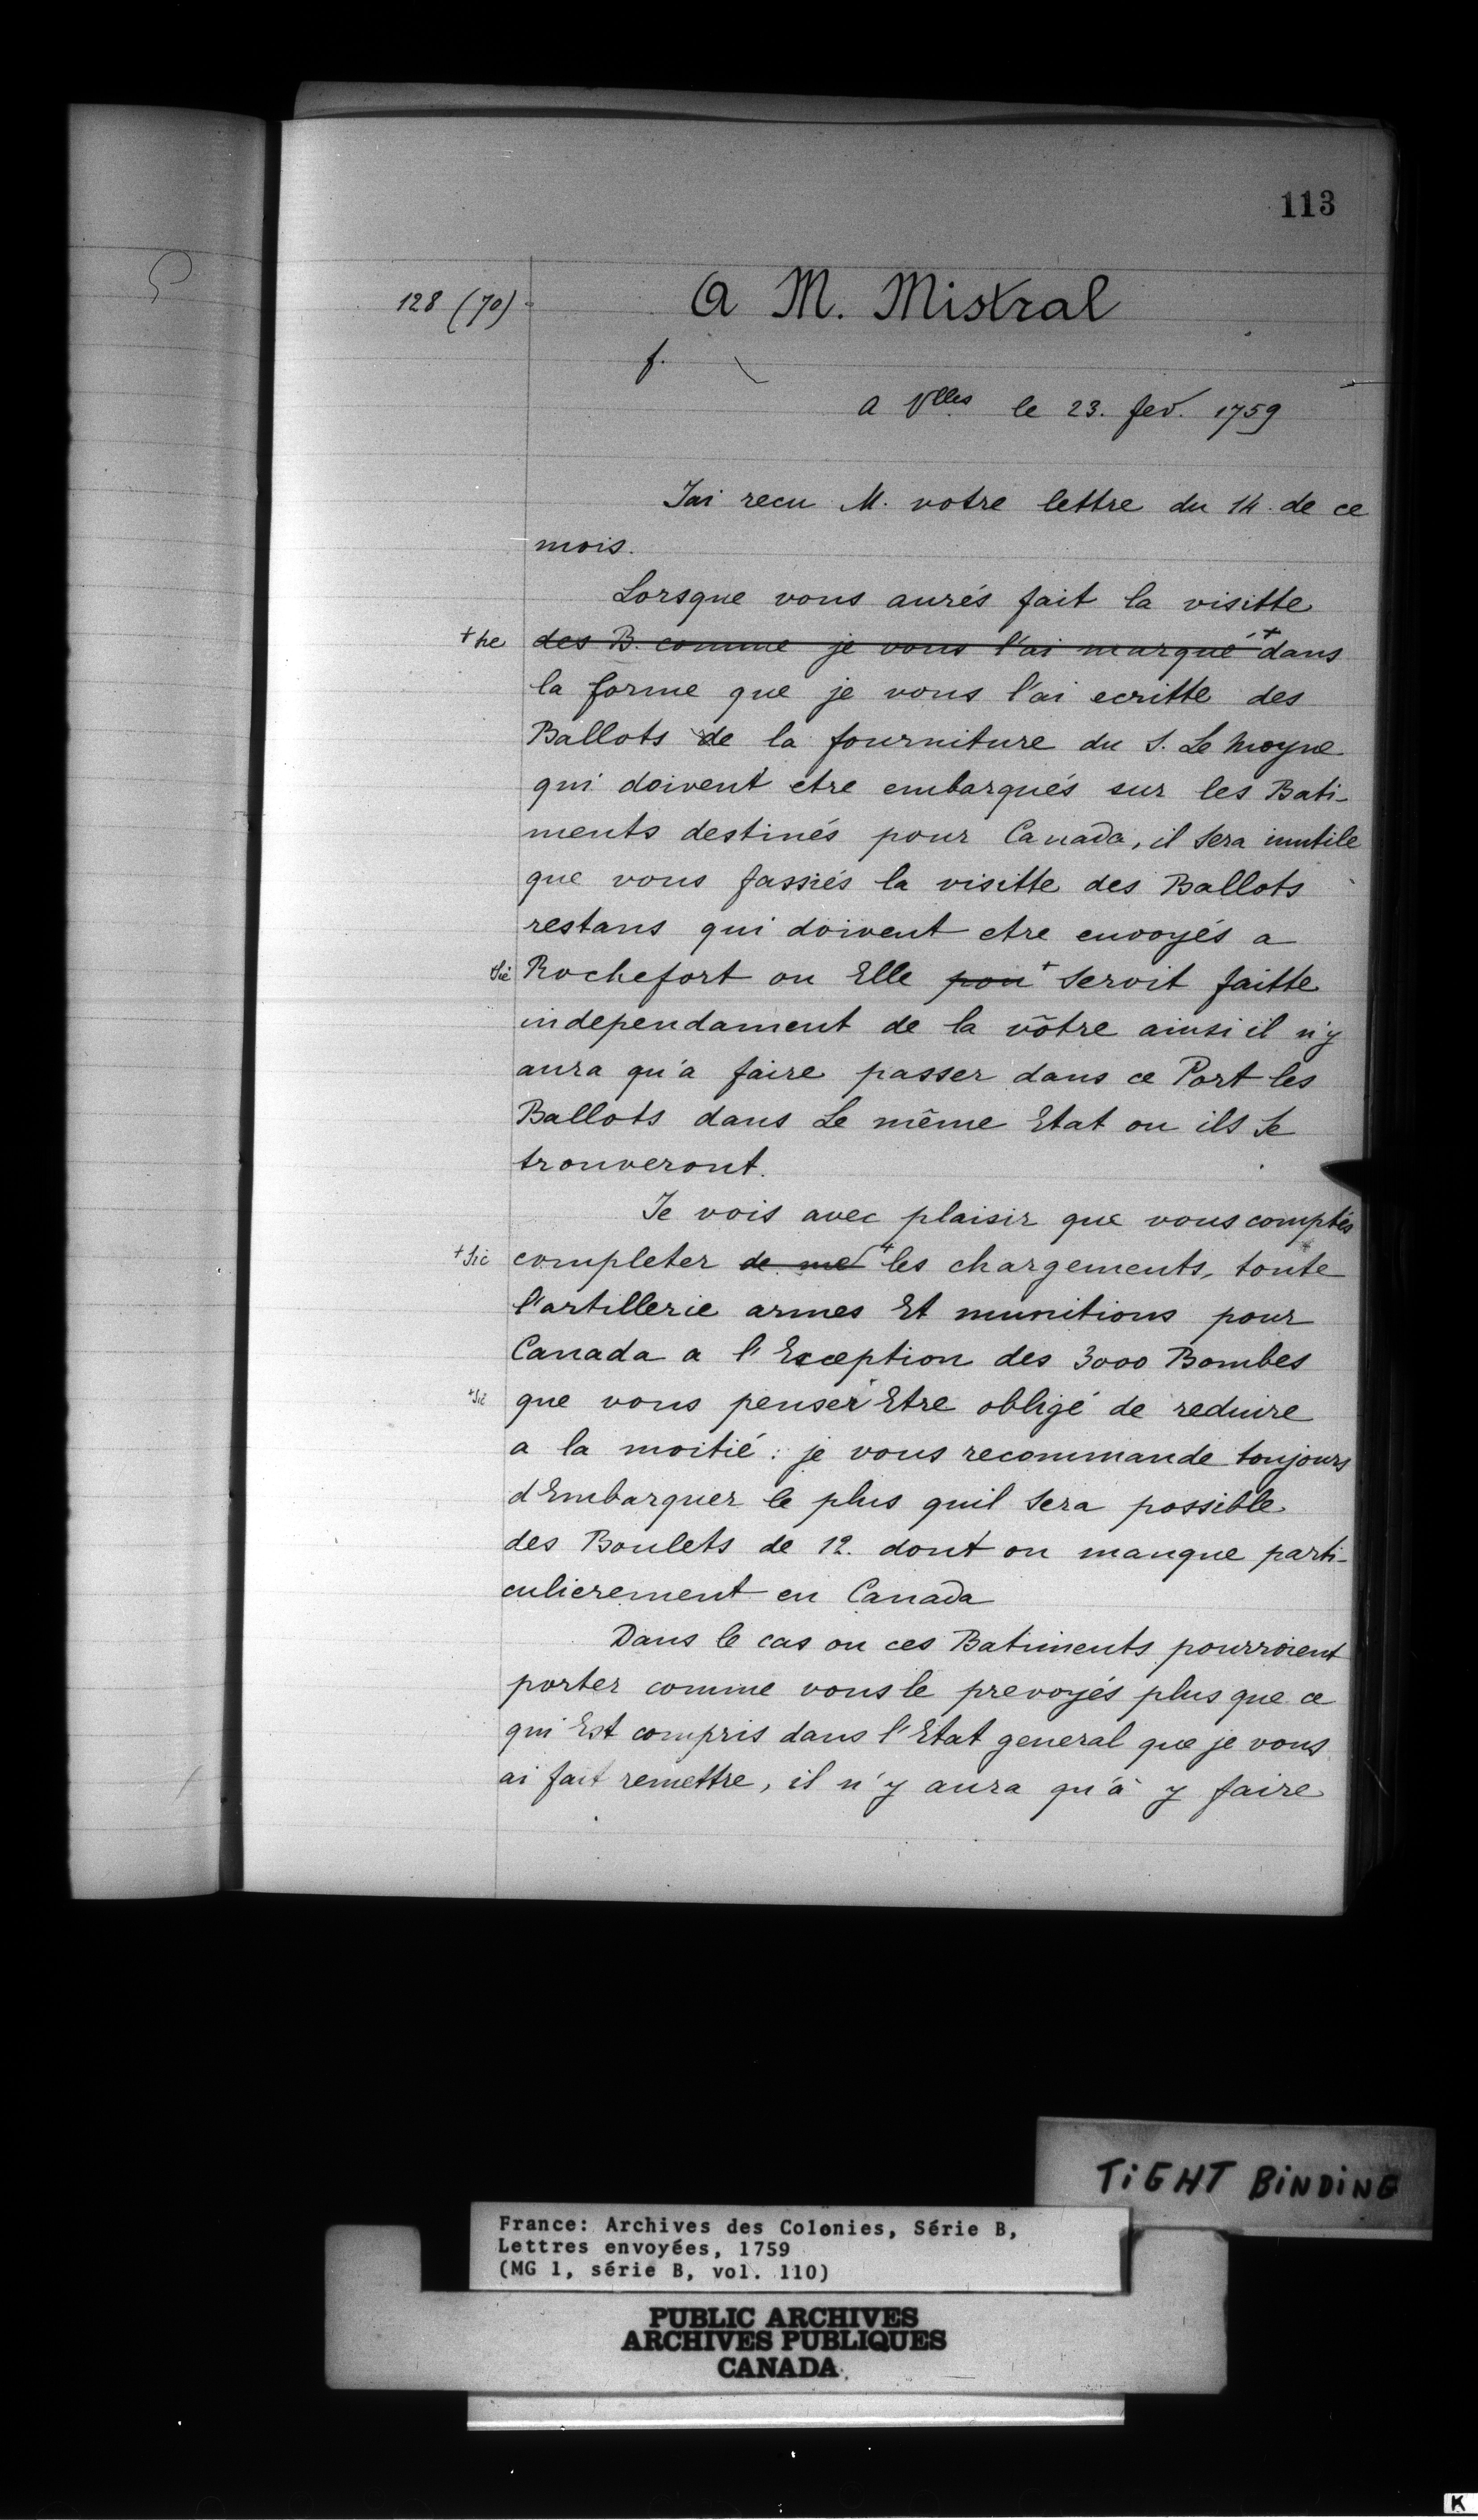 113
128 (70)
A M. Mistral
f.
a Vlles le 23. fev. 1759
Jai recu M. votre lettre du 14. de ce
mois.
Lorsque vous aurés fait la visitte
des B. comme je vous l'ai marqué + dans
la forme que je vous l'ai ecritte des
Ballots de la fourniture du S. Le Moyne
qui doivent etre embarqués sur les Bati-
ments destinés pour Canada, il sera inutile
que vous fassiés la visitte des Ballots
restans qui doivent etre envoyés a
sic Rochefort ou Elle pou + seroit faitte
independament de la vôtre ainsi il n'y
aura qu'a faire passer dans ce Port les
Ballots dans Le même Etat ou ils se
trouveront.
Je vois avec plaisir que vous comptés
+ sic completer de me + les chargements, toute
l'artillerie armes Et munitions pour
Canada a l'Exception des 3000 Bombes
+ sic que vous penser Etre obligé de reduire
a la moitié : je vous recommande toujours
d'Embarquer le plus quil sera possible
des Boulets de 12. dont on manque parti-
culierement en Canada
Dans le cas ou ces Batiments pourroient
porter comme vous le prevoyés plus que ce
qui Est compris dans l'Etat general que je vous
ai fait remettre, il n'y aura qu'à y faire
TIGHT BINDING
France: Archives des Colonies, Série B,
Lettres envoyées, 1759
(MG 1, série B, vol. 110)
PUBLIC ARCHIVES
ARCHIVES PUBLIQUES
CANADA
K